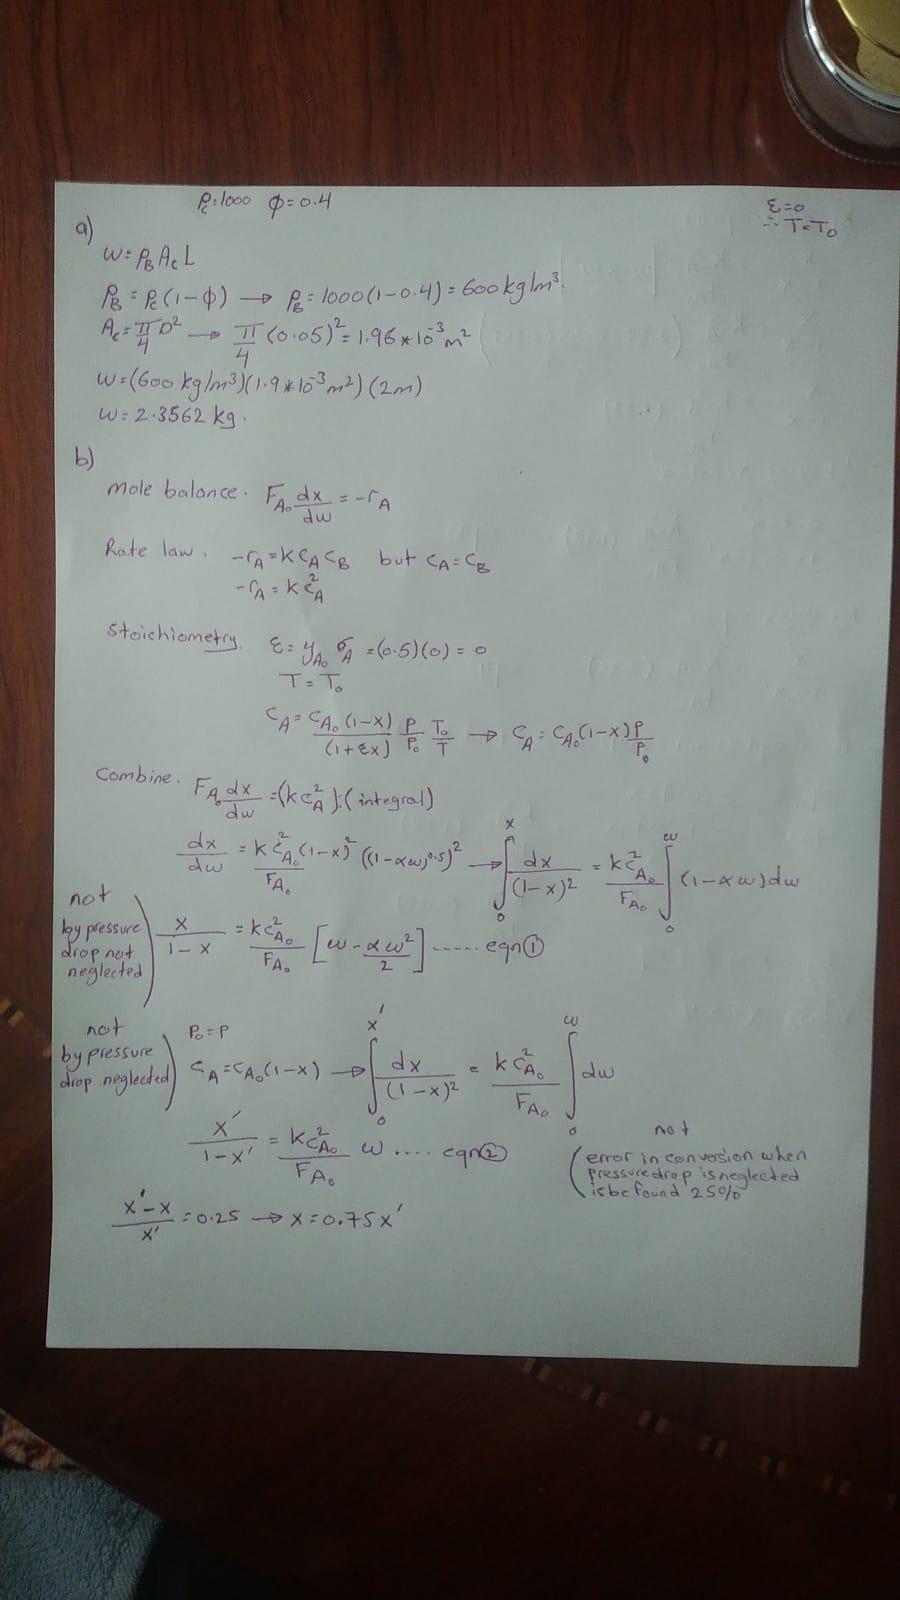 ρc=1000 φ=0.4
ε=0
∴ T=T₀
a)
W=ρB Ac L
ρB = ρc(1-φ) → ρB = 1000(1-0.4) = 600 kg/m³.
Ac=π/4 D² → π/4 (0.05)² = 1.96*10⁻³ m²
W=(600 kg/m³)(1.9*10⁻³m²)(2m)
W=2.3562 kg.
b)
Mole balance. FA₀ dx/dw = -rA
Rate law. -rA=K CA CB but CA=CB
-rA = K CA²
Stoichiometry. ε= yA₀ σA =(0.5)(0) = 0
T=T₀
CA= CA₀(1-x)/(1+εx) P/P₀ T₀/T → CA= CA₀(1-x)P/P₀
Combine. FA₀ dx/dw =(K CA²):(integral)
dx/dw = K CA₀²/FA₀ (1-x)² ((1-αw)^0.5)² → ∫₀ˣ dx/(1-x)² = K CA₀²/FA₀ ∫₀ʷ (1-αw)dw
not
by pressure
drop not
neglected
x/1-x = K CA₀²/FA₀ [w - αw²/2] ..... eqn①
not
by pressure
drop neglected
P₀=P
CA=CA₀(1-x) → ∫₀ˣ′ dx/(1-x)² = K CA₀²/FA₀ ∫₀ʷ dw
x′/1-x′ = K CA₀²/FA₀ w .... eqn②
not
error in conversion when
pressure drop is neglected
is be found 25%
x′-x/x′ = 0.25 → x=0.75x′